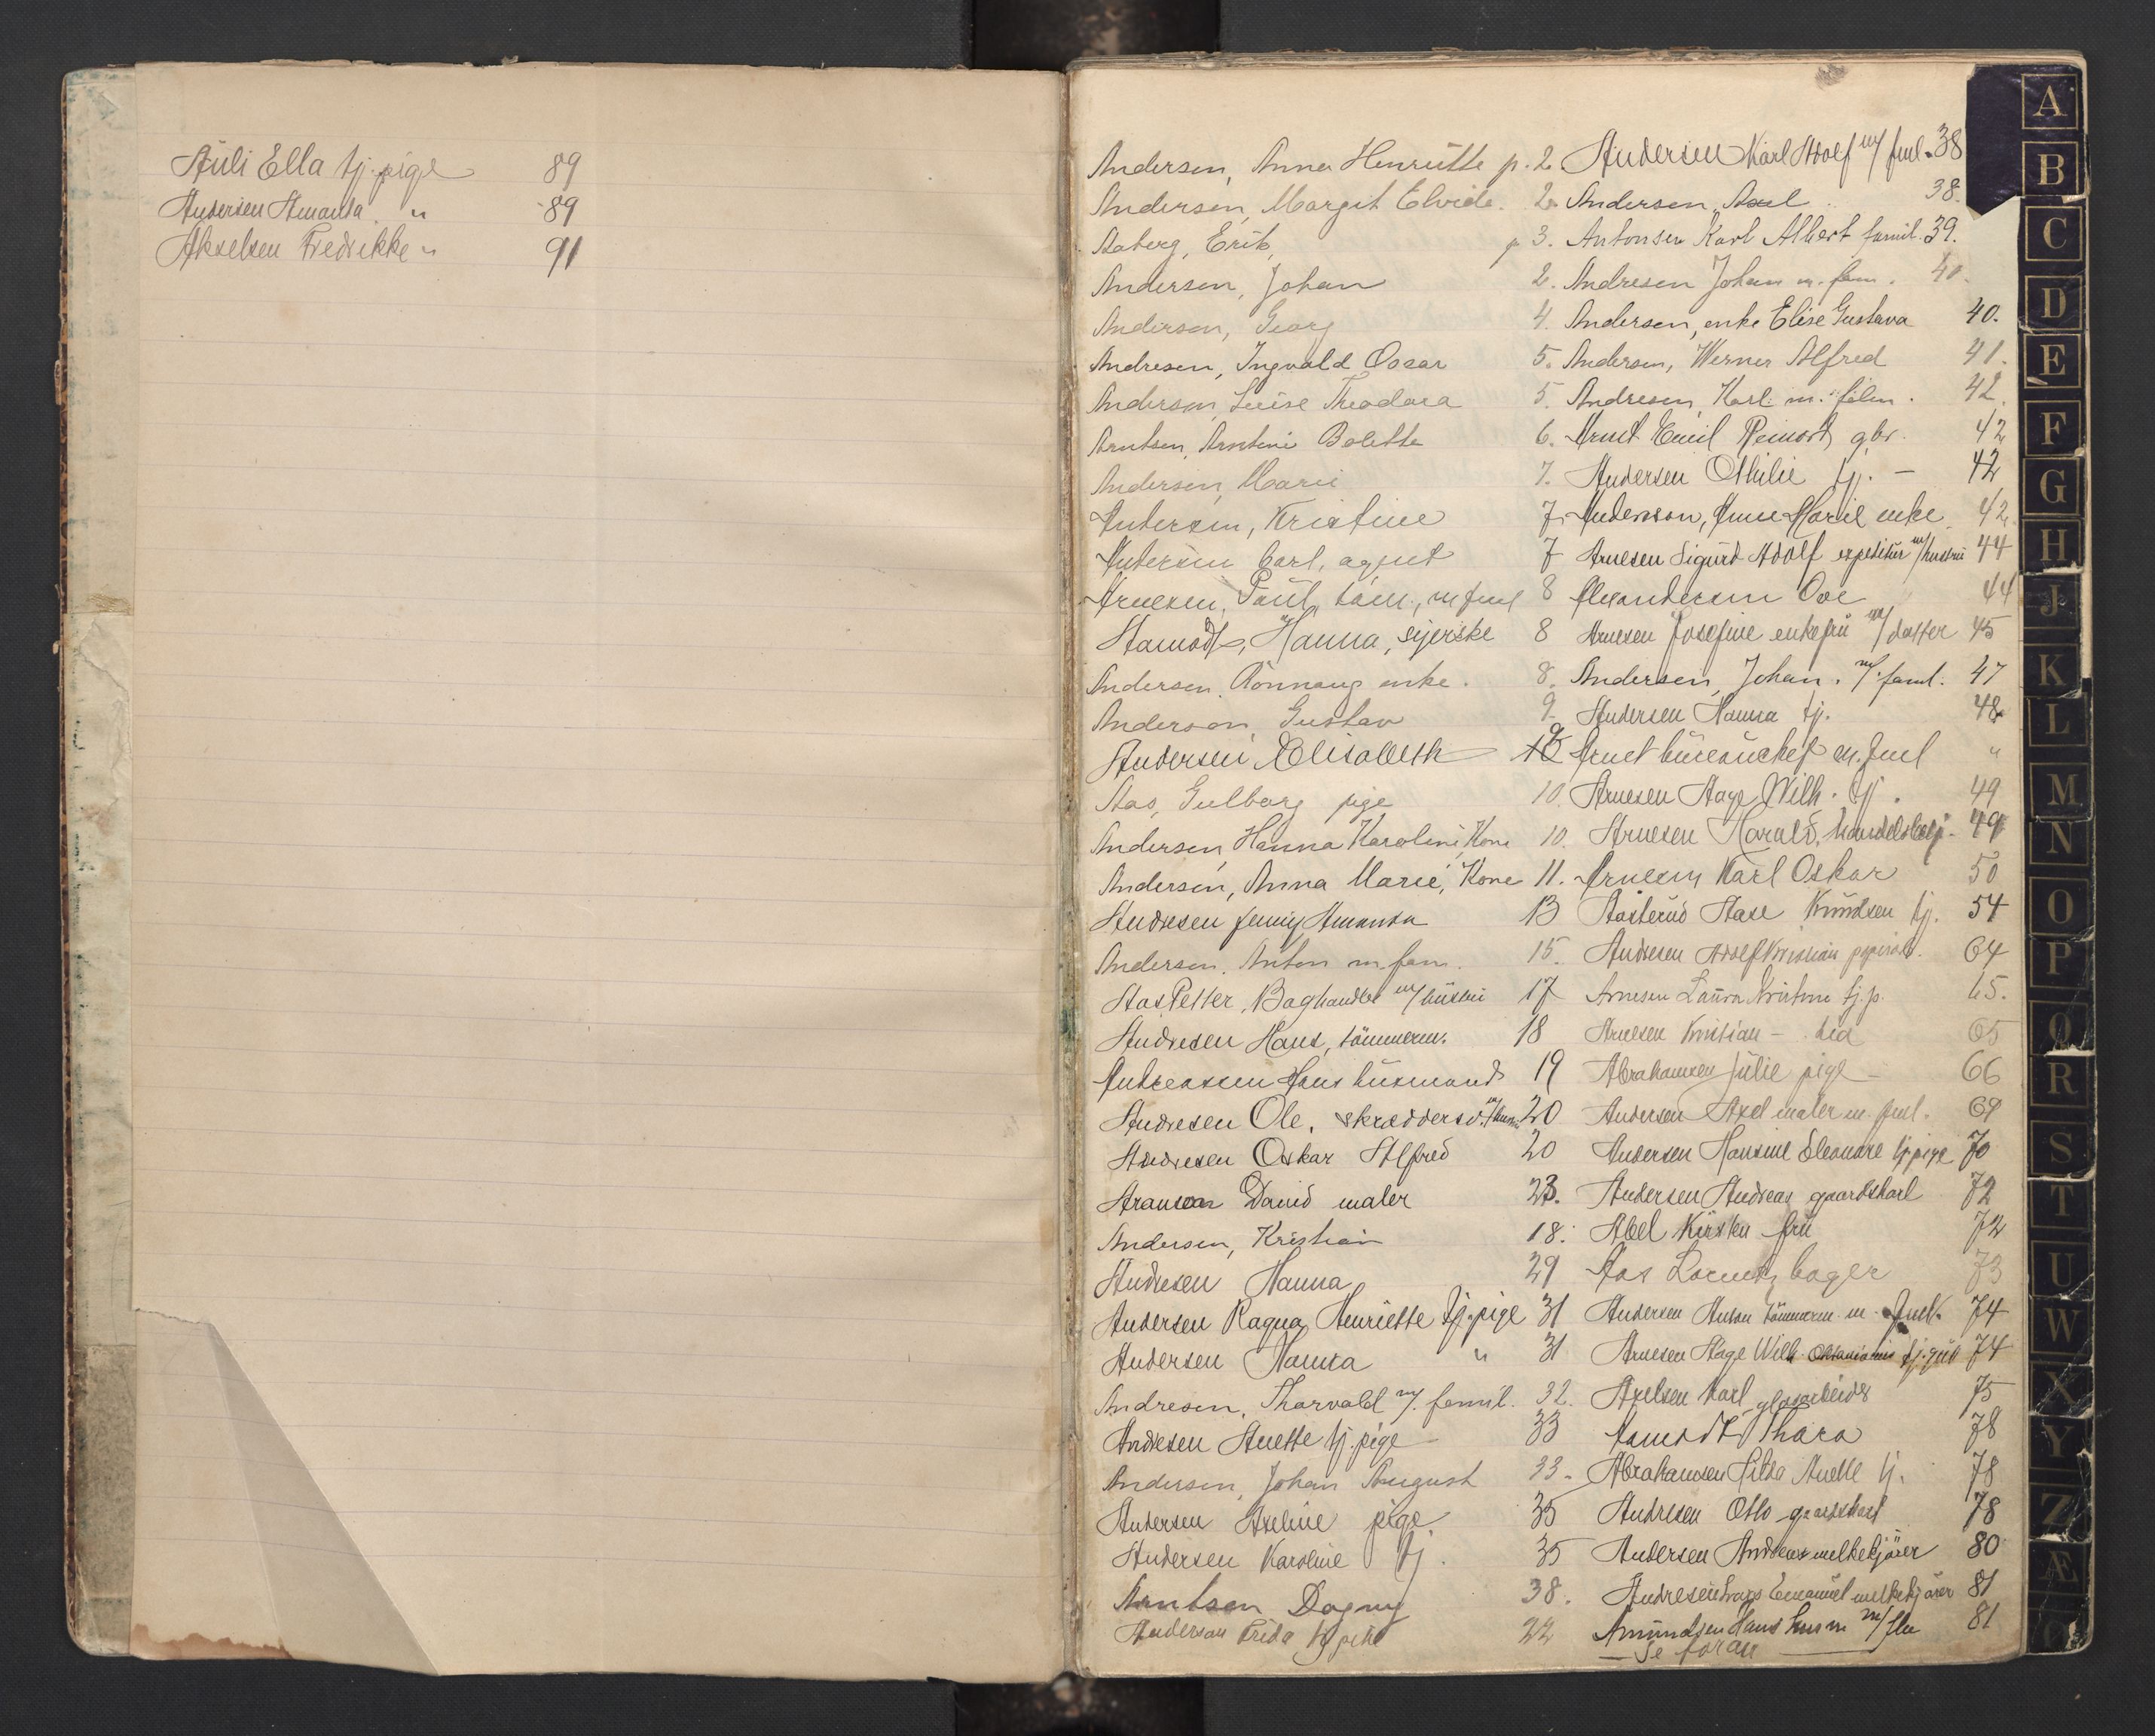 Auli Ella tj. pige 89
Andersen Amanda " 89
Akselsen Fredrikke " 91
Andersen, Anna Henriette p. 2
Andersen, Margit Elvide. 2
Aaberg, Erik, p 3.
Andersen, Johan 2.
Andersen, Georg 4.
Andresen, Ingvald Oscar 5.
Andersen, Luise Theodora 5.
Arntsen, Arntine Bolette 6.
Andersen, Marie 7.
Andersen, Kristine 7
Andersen Carl, agent 7
Arnesen, Paul, tøm., m fml 8
Aamodt, Hanna, syerske 8
Andersen, Rönnaug enke. 8.
Anderson, Gustav 9
Andersen Elisabeth 9
Aas, Gulborg pige 10.
Andersen, Hanna Karoline, Kone 10.
Andersen, Anna Marie, Kone 11.
Andresen Jenny Amanda 13
Andersen, Anton m. fam. 15.
Aas Petter, Baghandler m/ hustru 17
Andresen Hans, tömmerm. 18
Andreassen Hans husmand 19
Andresen Ole, skræddersv. m/ hustru 20
Andresen Oskar Alfred 20
Aronson David maler 23.
Andersen, Kristian 18.
Andresen Hanna 29
Andersen Ragna Henriette tj. pige 31
Andersen Hanna " 31
Andresen, Thorvald m/. famil. 32.
Andresen Anette tj. pige 33
Andersen, Johan August 33.
Andersen Axeline pige. 35
Andersen Karoline tj. 35
Arntsen Dagny 38.
Anderson Frida tj pike 22
A
Andersen Karl Adolf m/ fml. 38
Andersen, Axel 38.
Antonsen Karl Albert famil. 39.
Andresen Johan m. fam. 40.
Andersen, enke Elise Gustava 40.
Andersen, Werner Alfred 41.
Andresen, Karl. m. fam. 42.
Arnet Emil gbr. 42
Andersen Othilie tj. — 42
Anderson, Anne Marie enke 42.
Arnesen Sigurd Adolf expeditør m/ hustru 44
Alexandersen Ove 44
Arnesen Josefine enkefru m/ datter 45
Andersen, Johan. m/. faml. 47
Andersen Hanna tj. 48
Arnet bureauchef m. fml "
Arnesen Aage Wilh. tj. 49
Arnesen Harald, handelsbetj. 49
Arnesen Karl Oskar 50
Aasterud Aase Knudsen tj. 54
Andresen Adolf Kristian 64
Arnesen Laura tj. p. 65.
Arnesen Kristian — 65
Abrahamsen Julie pige — 66
Andersen Axel maler m. fml. 69
Andersen Hansine Eleonore tj pige 70
Andersen Andreas gaardskarl 72
Abel Kirsten fru 72
Aas Lorentz bager 73
Andersen Anton tömmerm. m. fml. 74
Arnesen Aage Wilh. tj. gut 74
Axelsen Karl glasarbeider 75
Aamodt Thora 78
Abrahamsen Hilda Anette tj. 78
Andresen Otto gaardskarl 78
Andersen Andreas melkekjører 80
Andresen Lars Emanuel melkekjører 81
Amundsen Hans husm m/ flu 81
— Se foran —
B
C
D
E
F
G
H
J
K
L
M
N
O
P
Q
R
S
T
U
W
X
Y
Z
Æ
Ø